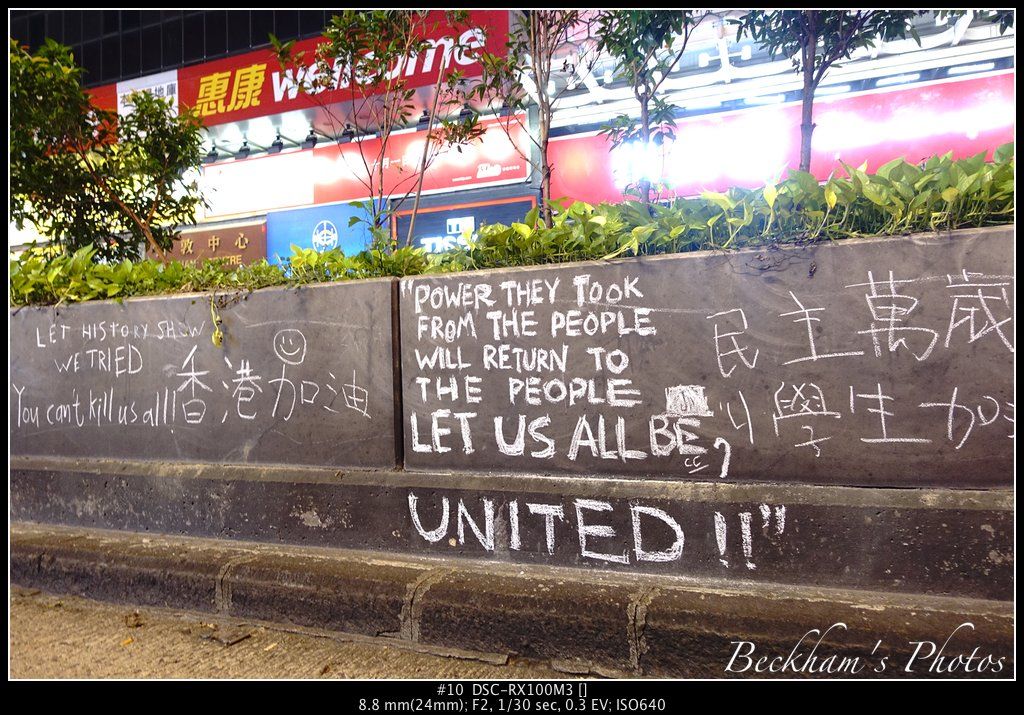 惠康 welcome
TISS
中心
LET HISTORY SHOW
WE TRIED
You can't kill us all!!
香港加油
"POWER THEY TOOK
FROM THE PEOPLE
WILL RETURN TO
THE PEOPLE
LET US ALL BE,
UNITED !!"
民主萬歲
學生加
Beckham's Photos
#10 DSC-RX100M3 []
8.8 mm(24mm); F2, 1/30 sec, 0.3 EV; ISO640